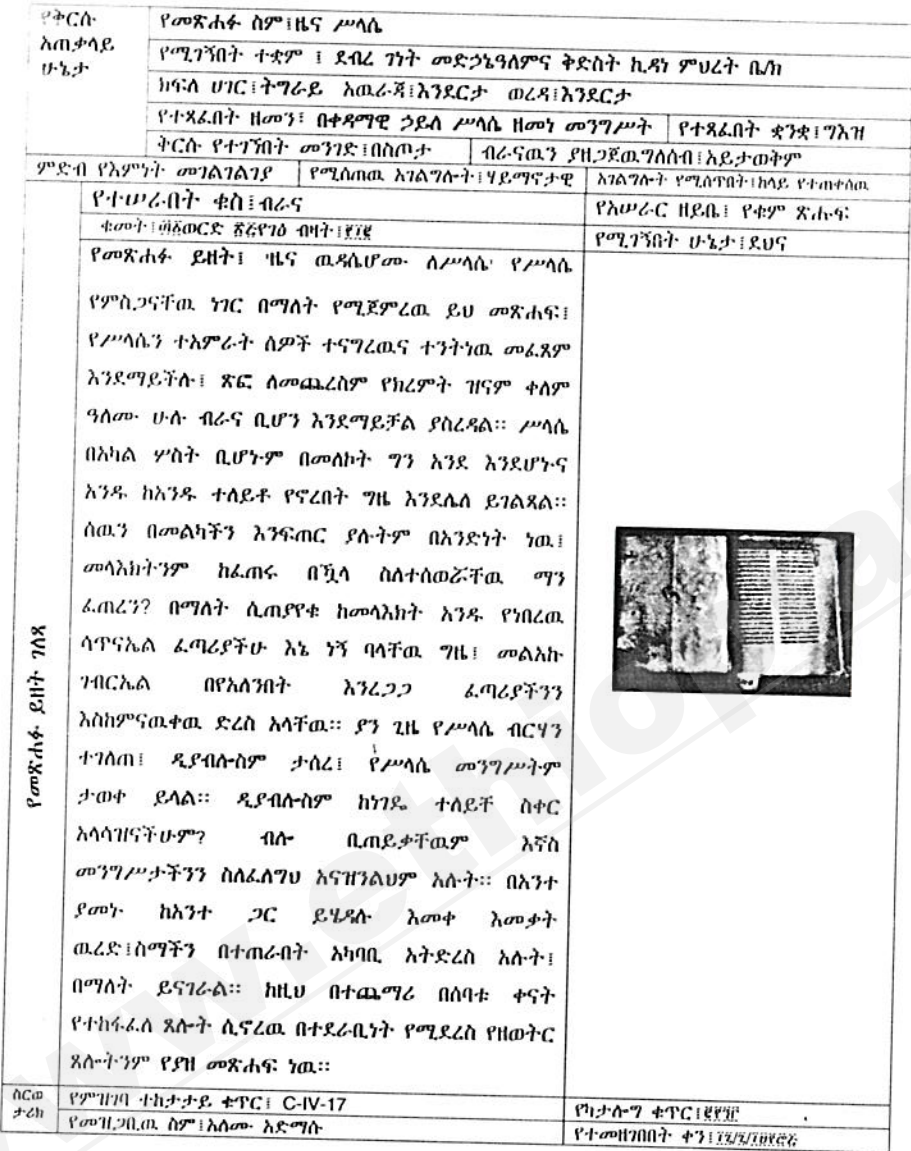 የቅርሱ
አጠቃላይ
ሁኔታ
የመጽሐፉ ስም፤ዜና ሥላሴ
የሚገኝበት ተቋም ፤ ደብረ ገነት መድኃኔዓለምና ቅድስት ኪዳነ ምህረት ቤ/ክ
ክፍለ ሀገር፤ትግራይ አዉራጃ፤እንደርታ ወረዳ፤እንደርታ
የተጻፈበት ዘመን፤ በቀዳማዊ ኃይለ ሥላሴ ዘመነ መንግሥት የተጻፈበት ቋንቋ፤ግእዝ
ቅርሱ የተገኘበት መንገድ፤በስጦታ ብራናዉን ያዘጋጀዉግለሰብ፤አይታወቅም
ምድብ የእምነት መገልገልገያ የሚሰጠዉ አገልግሎት፤ሃይማኖታዊ አገልግሎት የሚሰጥበት፤ከላይ የተጠቀሰዉ
የተሠራበት ቁስ፤ብራና የአሠራር ዘይቤ፤ የቁም ጽሑፍ
ቁመት፤ ብዛት፤ የሚገኝበት ሁኔታ፤ደህና
የመጽሐፉ ይዘት ገለጻ
የመጽሐፉ ይዘት፤ 'ዜና ዉዳሴሆሙ ለሥላሴ' የሥላሴ
የምስጋናቸዉ ነገር በማለት የሚጀምረዉ ይህ መጽሐፍ፤
የሥላሴን ተአምራት ሰዎች ተናግረዉና ተንትነዉ መፈጸም
እንደማይችሉ፤ ጽፎ ለመጨረስም የክረምት ዝናም ቀለም
ዓለሙ ሁሉ ብራና ቢሆን እንደማይቻል ያስረዳል። ሥላሴ
በአካል ሦስት ቢሆኑም በመለኮት ግን አንደ እንደሆኑና
አንዱ ከአንዱ ተለይቶ የኖረበት ግዜ እንደሌለ ይገልጻል።
ሰዉን በመልካችን እንፍጠር ያሉትም በአንድነት ነዉ፤
መላእክትንም ከፈጠሩ በኟላ ስለተሰወሯቸዉ ማን
ፈጠረን? በማለት ሲጠያየቁ ከመላእክት አንዱ የነበረዉ
ሳጥናኤል ፈጣሪያችሁ እኔ ነኝ ባላቸዉ ግዜ፤ መልአኩ
ገብርኤል በየአለንበት እንረጋጋ ፈጣሪያችንን
እስከምናዉቀዉ ድረስ አላቸዉ። ያን ጊዜ የሥላሴ ብርሃን
ተገለጠ፤ ዲያብሎስም ታሰረ፤ የሥላሴ መንግሥትም
ታወቀ ይላል። ዲያብሎስም ከነገዴ ተለይቸ ስቀር
አላሳዝናችሁም? ብሎ ቢጠይቃቸዉም እኛስ
መንግሥታችንን ስለፈለግህ አናዝንልህም አሉት። በአንተ
ያመኑ ከአንተ ጋር ይሄዳሉ እመቀ እመቃት
ዉረድ፤ስማችን በተጠራበት አካባቢ አትድረስ አሉት፤
በማለት ይናገራል። ከዚህ በተጨማሪ በሰባቱ ቀናት
የተከፋፈለ ጸሎት ሲኖረዉ በተደራቢነት የሚደረስ የዘወትር
ጸሎትንም የያዘ መጽሐፍ ነዉ።
ስርወ
ታሪክ
የምዝገባ ተከታታይ ቁጥር፤ C-IV-17 የካታሎግ ቁጥር፤
የመዝጋቢዉ ስም፤አለሙ አድማሱ የተመዘገበበት ቀን፤